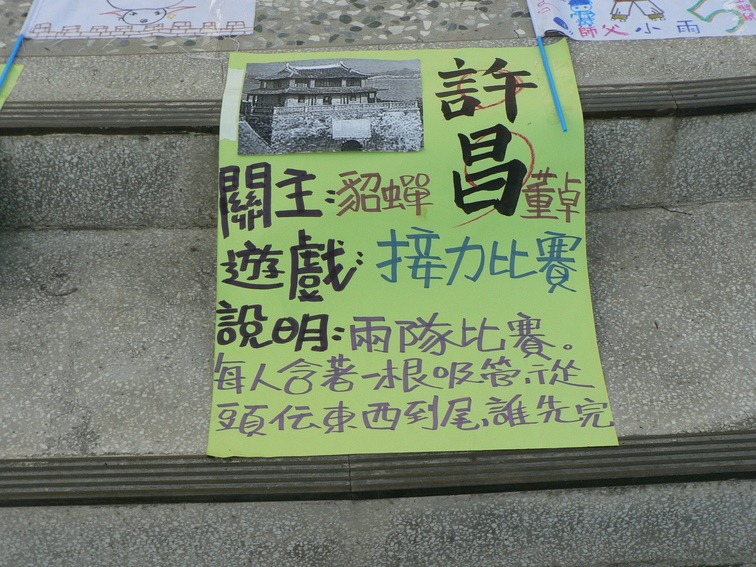 師父小雨
許昌
關主:貂蟬 董卓
遊戲:接力比賽
說明:兩隊比賽。
每人含著一根吸管,從
頭伝東西到尾,誰先完